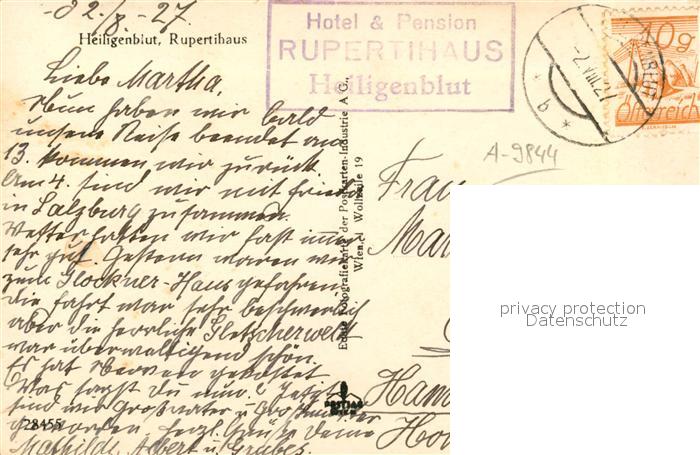 2./8.27.
Heiligenblut, Rupertihaus
Hotel & Pension
RUPERTIHAUS
Heiligenblut
Liebe Martha,
Nun haben wir bald
unsere Reise beendet am
13. kommen wir zurück
Am 4. sind wir mit Frieda
in Salzburg zusammen.
Wetter hatten wir fast immer
sehr gut. Gestern waren wir
zum Glockner-Haus gefahren
die Fahrt war sehr beschwerlich
aber die herrliche Gletscherwelt
war überwältigend schön.
Es hat Nerven gekostet
Was sagst du nun? Jetzt
sind wir Großvater u. Großmutter
geworden. Herzl. Grüße Deine
Mathilde, Albert u.
28455
Echte Fotografiekarte der Postkarten-Industrie A.G.,
Wien, I Wollzeile 19
POSTIAG
WIEN
10g
Österreich
A-9844
Frau
privacy protection
Datenschutz